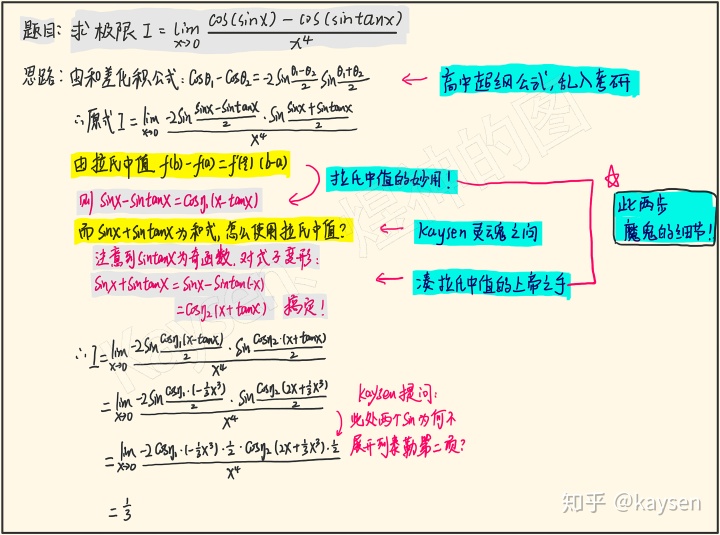 题目: 求极限 I = lim x→0 cos(sinx) - cos(sintanx) / x⁴
思路: 由和差化积公式: cosθ₁-cosθ₂=-2sin θ₁-θ₂/2 sin θ₁+θ₂/2
高中超纲公式,乱入考研
∴原式 I=lim x→0 -2sin sinx-sintanx/2 · sin sinx+sintanx/2 / x⁴
由拉氏中值 f(b)-f(a)=f'(ξ)(b-a)
拉氏中值的妙用!
则 sinx-sintanx=cosη₁(x-tanx)
此两步
魔鬼的细节!
而sinx+sintanx为和式,怎么使用拉氏中值?
Kaysen灵魂之问
注意到sintanx为奇函数,对式子变形:
sinx+sintanx=sinx-sintan(-x)
凑拉氏中值的上帝之手
=cosη₂(x+tanx) 搞定!
∴I=lim x→0 -2sin cosη₁(x-tanx)/2 · sin cosη₂·(x+tanx)/2 / x⁴
=lim x→0 -2sin cosη₁·(-⅓x³)/2 · sin cosη₂(2x+⅓x³)/2 / x⁴
Kaysen提问:
此处两个sin为何不
展开到泰勒第二项?
=lim x→0 -2cosη₁·(-⅓x³)·½·cosη₂(2x+⅓x³)·½ / x⁴
=⅓
知乎 @kaysen